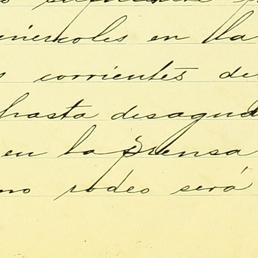 miércoles en la
corrientes de
hasta desagua
en la prensa
mo rodeo será